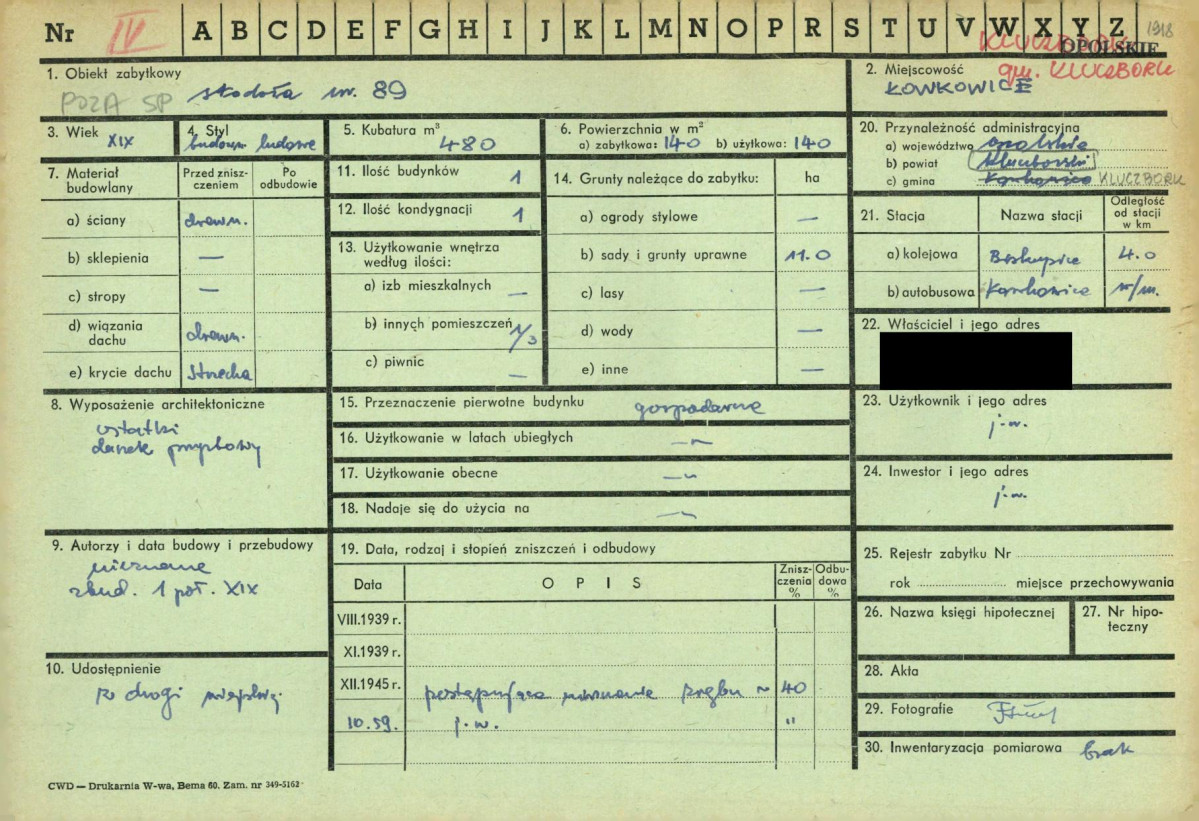 Nr IV A B C D E F G H I J K L M N O P R S T U V W X Y Z 1918
KLUCZBORK OPOLSKIE
1. Obiekt zabytkowy
POZA SP stodoła nr. 89
2. Miejscowość gm. KLUCZBORK
ŁOWKOWICE
3. Wiek XIX
4. Styl
budown. ludowe
5. Kubatura m³
480
6. Powierzchnia w m²
a) zabytkowa: 140 b) użytkowa: 140
20. Przynależność administracyjna
a) województwo opolskie
b) powiat Kluczborski
c) gmina KLUCZBORK
7. Materiał budowlany
Przed zniszczeniem
Po odbudowie
a) ściany drewn.
b) sklepienia —
c) stropy —
d) wiązania dachu drewn.
e) krycie dachu strzecha
11. Ilość budynków 1
12. Ilość kondygnacji 1
13. Użytkowanie wnętrza
według ilości:
a) izb mieszkalnych —
b) innych pomieszczeń 1/3
c) piwnic —
14. Grunty należące do zabytku: ha
a) ogrody stylowe —
b) sady i grunty uprawne 11.0
c) lasy —
d) wody —
e) inne —
21. Stacja
Nazwa stacji
Odległość od stacji w km
a) kolejowa Biskupice 4.0
b) autobusowa n/m.
22. Właściciel i jego adres
8. Wyposażenie architektoniczne
ostatki
daszek przyzbowy
15. Przeznaczenie pierwotne budynku gospodarcze
16. Użytkowanie w latach ubiegłych —„—
17. Użytkowanie obecne —„—
18. Nadaje się do użycia na —„—
23. Użytkownik i jego adres
j.w.
24. Inwestor i jego adres
j.w.
9. Autorzy i data budowy i przebudowy
nieznane
zbud. 1 poł. XIX
19. Data, rodzaj i stopień zniszczeń i odbudowy
Data O P I S Zniszczenia % Odbudowa %
VIII.1939 r.
XI.1939 r.
XII.1945 r. postępujące niszczenie zrębu ~ 40
10.59. j.w. "
10. Udostępnienie
z drogi wiejskiej
25. Rejestr zabytku Nr
rok miejsce przechowywania
26. Nazwa księgi hipotecznej
27. Nr hipoteczny
28. Akta
29. Fotografie
30. Inwentaryzacja pomiarowa brak
CWD — Drukarnia W-wa, Bema 60. Zam. nr 349-5162